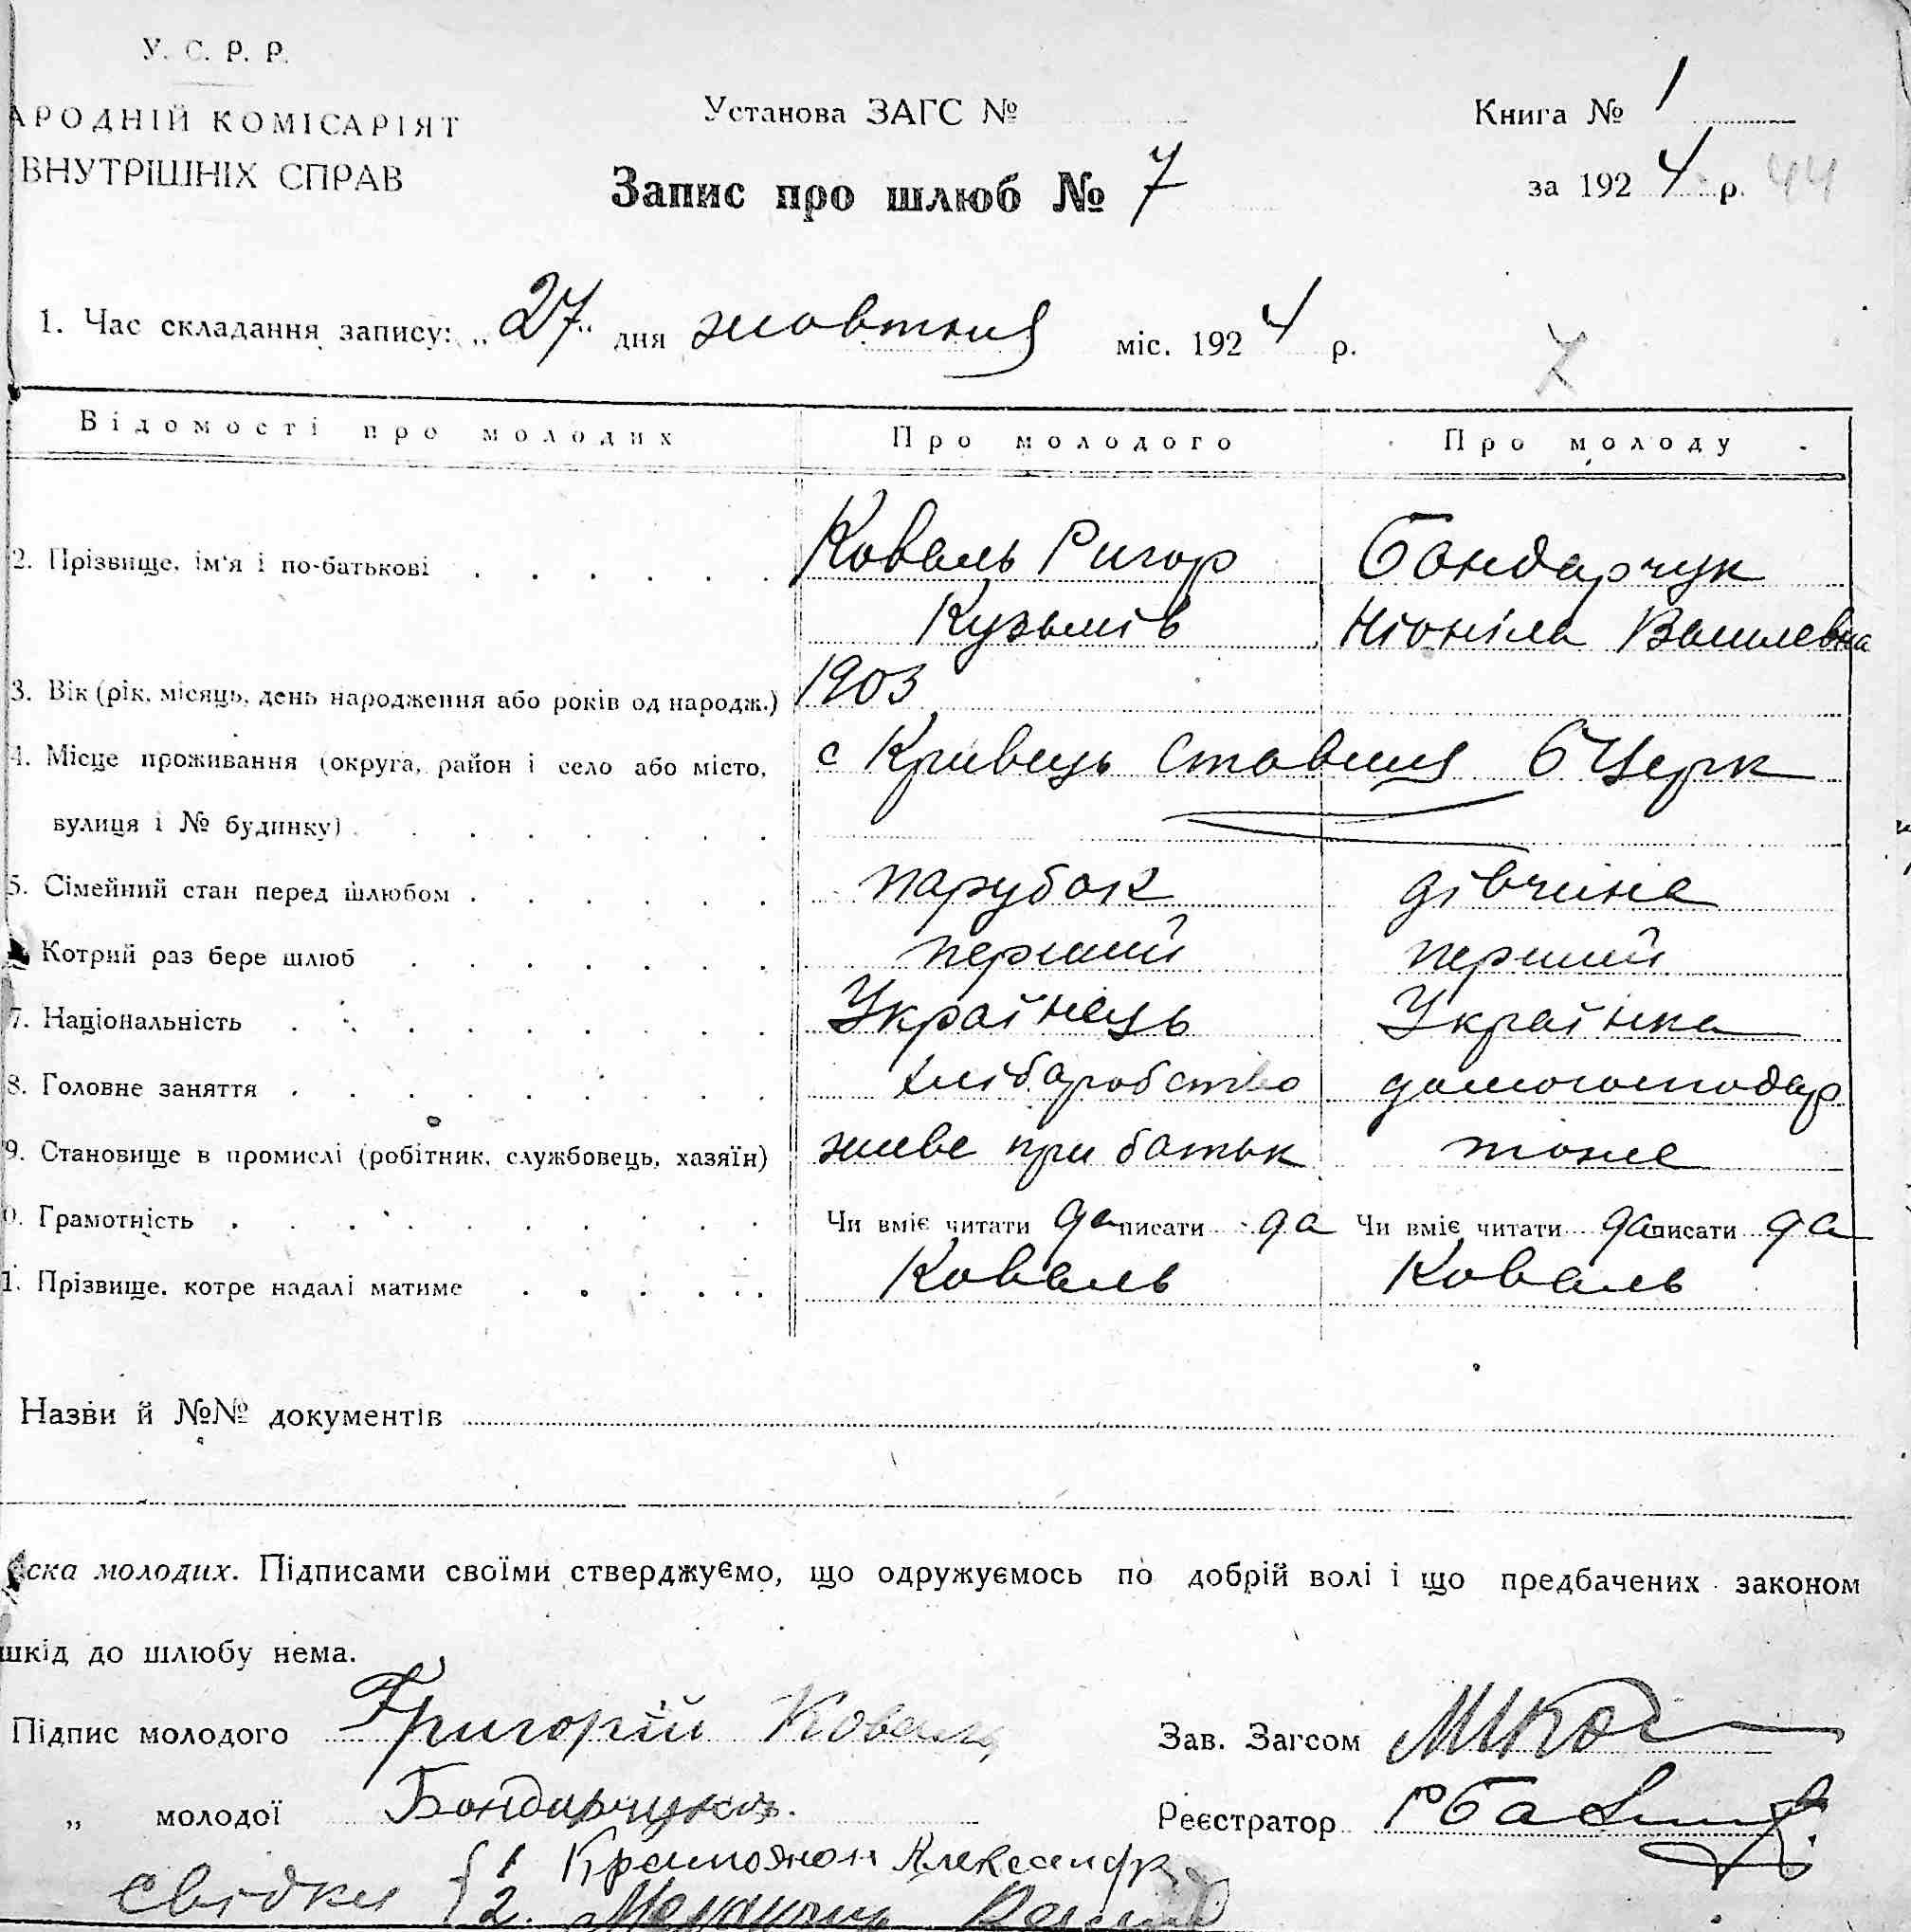 У. С. Р. Р.
АРОДНІЙ КОМІСАРІЯТ
ВНУТРІШНІХ СПРАВ
Установа ЗАГС №
Запис про шлюб № 7
Книга № 1
за 1924 р. 44
1. Час складання запису: „27“ дня жовтня міс. 1924 р.
7
Відомості про молодих Про молодого Про молоду
2. Прізвище, ім'я і по-батькові Коваль Ригор Бондарчук
Кузьмів Ніоніла Василевна
3. Вік (рік, місяць, день народження або років од народж.) 1903
4. Місце проживання (округа, район і село або місто, с Кривець Ставищ БЦерк
вулиця і № будинку)
5. Сімейний стан перед шлюбом парубок дівчина
Котрий раз бере шлюб перший перший
7. Національність Українець Українка
8. Головне заняття хліборобство домогосподар
9. Становище в промислі (робітник, службовець, хазяїн) живе при батьк тоже
0. Грамотність Чи вміє читати да писати да Чи вміє читати да писати да
1. Прізвище, котре надалі матиме Коваль Коваль
Назви й №№ документів
ска молодих. Підписами своїми стверджуємо, що одружуємось по добрій волі і що предбачених законом
шкід до шлюбу нема.
Підпис молодого Григорій Коваль
Зав. Загсом
„ молодої Бондарчукъ.
Реєстратор
Свідки 1 Александр
2.